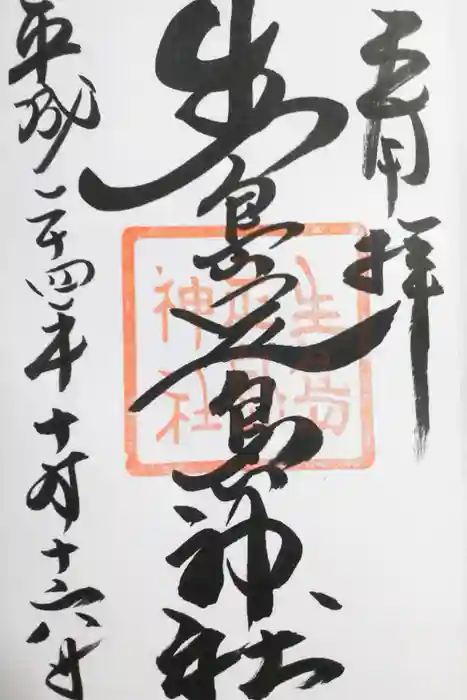 参拝
生島足島神社
生島足島神社
平成二十四年十月十六日